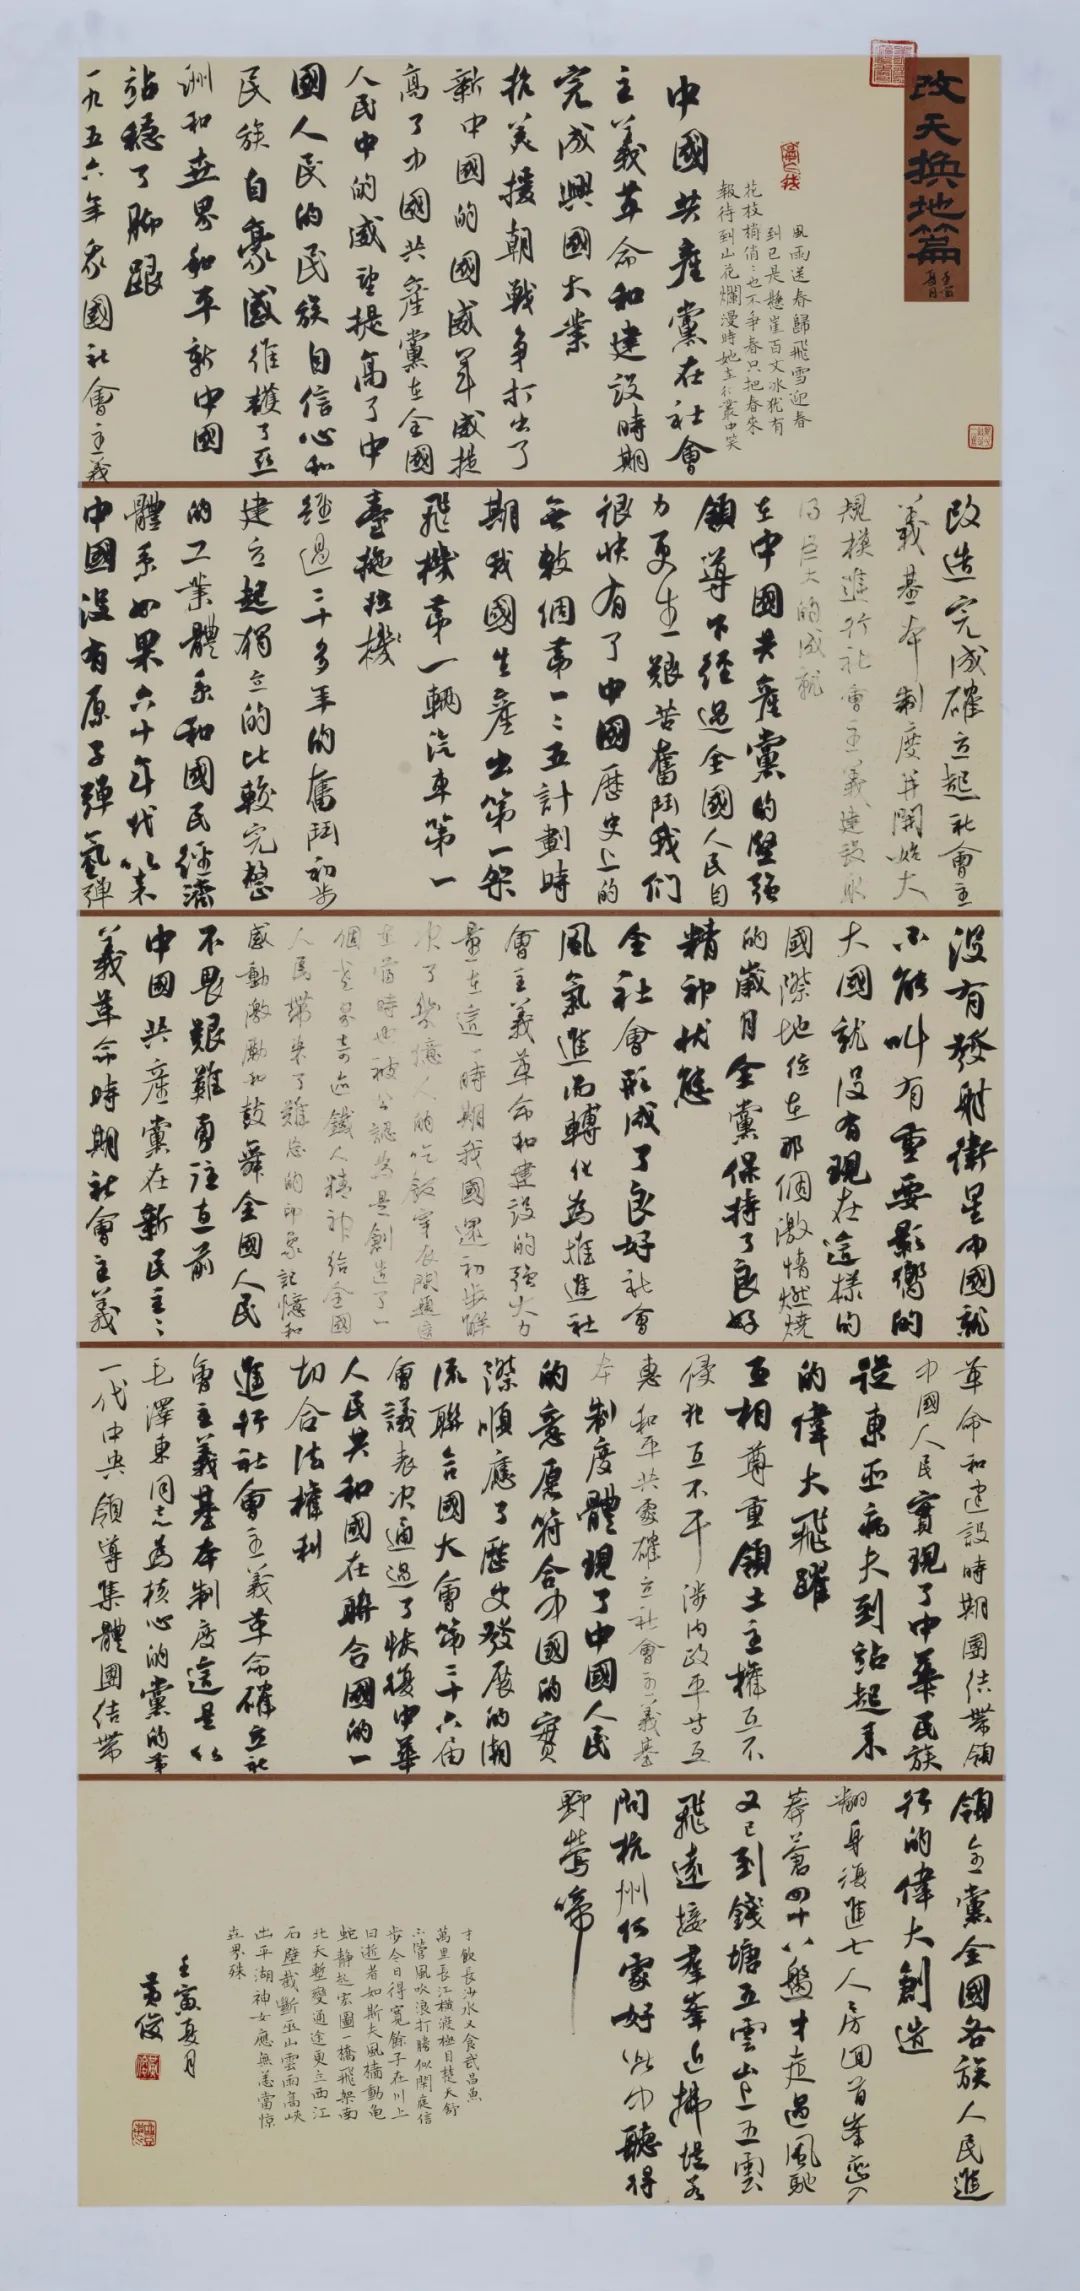 改天換地篇
壬寅夏月
風雨送春歸飛雪迎春
到已是懸崖百丈冰猶有
花枝梢俏〻也不爭春只把春來
報待到山花爛漫時她在叢中笑
中國共產黨在社會
主義革命和建設時期
完成興國大業
抗美援朝戰爭打出了
新中國的國威軍威提
高了中國共產黨在全國
人民中的威望提高了中
國人民的民族自信心和
民族自豪感維護了亞
洲和世界和平新中國
站穩了腳跟
一九五六年我國社會主義
改造完成確立起社會主
義基本制度并開始大
規模進行社會主義建設取
得巨大的成就
在中國共產黨的堅強
領導下經過全國人民自
力更生艱苦奮鬥我們
很快有了中國歷史上的
無數個第一一五計劃時
期我國生產出第一架
飛機第一輛汽車第一
臺拖拉機
經過二十多年的奮鬥初步
建立起獨立的比較完整
的工業體系和國民經濟
體系如果六十年代以來
中國沒有原子彈氫彈
沒有發射衛星中國就
不能叫有重要影響的
大國就沒有現在這樣的
國際地位在那個激情燃燒
的歲月全黨保持了良好
精神狀態
全社會形成了良好社會
風氣進而轉化為推進社
會主義革命和建設的強大力
量在這一時期我國還初步解
決了幾億人的吃飯穿衣問題這
在當時也被公認為是創造了一
個世界奇迹鐵人精神給全國
人民帶來了難忘的印象記憶和
感動激勵和鼓舞全國人民
不畏艱難勇往直前
中國共產黨在新民主主
義革命時期社會主義
革命和建設時期團結帶領
中國人民實現了中華民族
從東亞病夫到站起來
的偉大飛躍
互相尊重領土主權互不
侵犯互不干涉內政平等互
惠和平共處確立社會主義基
本制度體現了中國人民
的意愿符合中國的實
際順應了歷史發展的潮
流聯合國大會第二十六屆
會議表決通過了恢復中華
人民共和國在聯合國的一
切合法權利
進行社會主義革命確立社
會主義基本制度這是以
毛澤東同志為核心的黨的第
一代中央領導集體團結帶
領全黨全國各族人民進
行的偉大創造
翻身復進七人房回首峰巒入
莽蒼四十八盤才走過風馳
又已到錢塘五雲山上五雲
飛遠接群峰近拂堤若
問杭州何處好此中聽得
野鶯啼
才飲長沙水又食武昌魚
萬里長江橫渡極目楚天舒
不管風吹浪打勝似閑庭信
步今日得寬餘子在川上
曰逝者如斯夫風檣動龜
蛇靜起宏圖一橋飛架南
北天塹變通途更立西江
石壁截斷巫山雲雨高峽
出平湖神女應無恙當惊
世界殊
壬寅夏月
黃俊